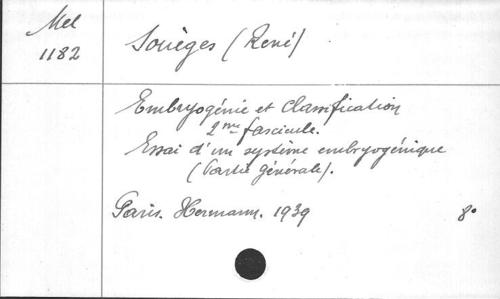 Mel
1182
Souèges (René)
Embryogénie et Classification
2me fascicule.
Essai d'un système embryogénique
(Partie générale).
Paris. Hermann. 1939 8°